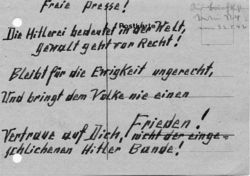 Freie Presse!
Postkarte
Die Hitlerei bedeutet in der Welt,
gewalt geht vor Recht!
Bleibt für die Ewigkeit ungerecht,
Und bringt dem Volke nie einen
Frieden!
Vertraue auf Dich, nicht der einge=
schlichenen Hitler Bande!